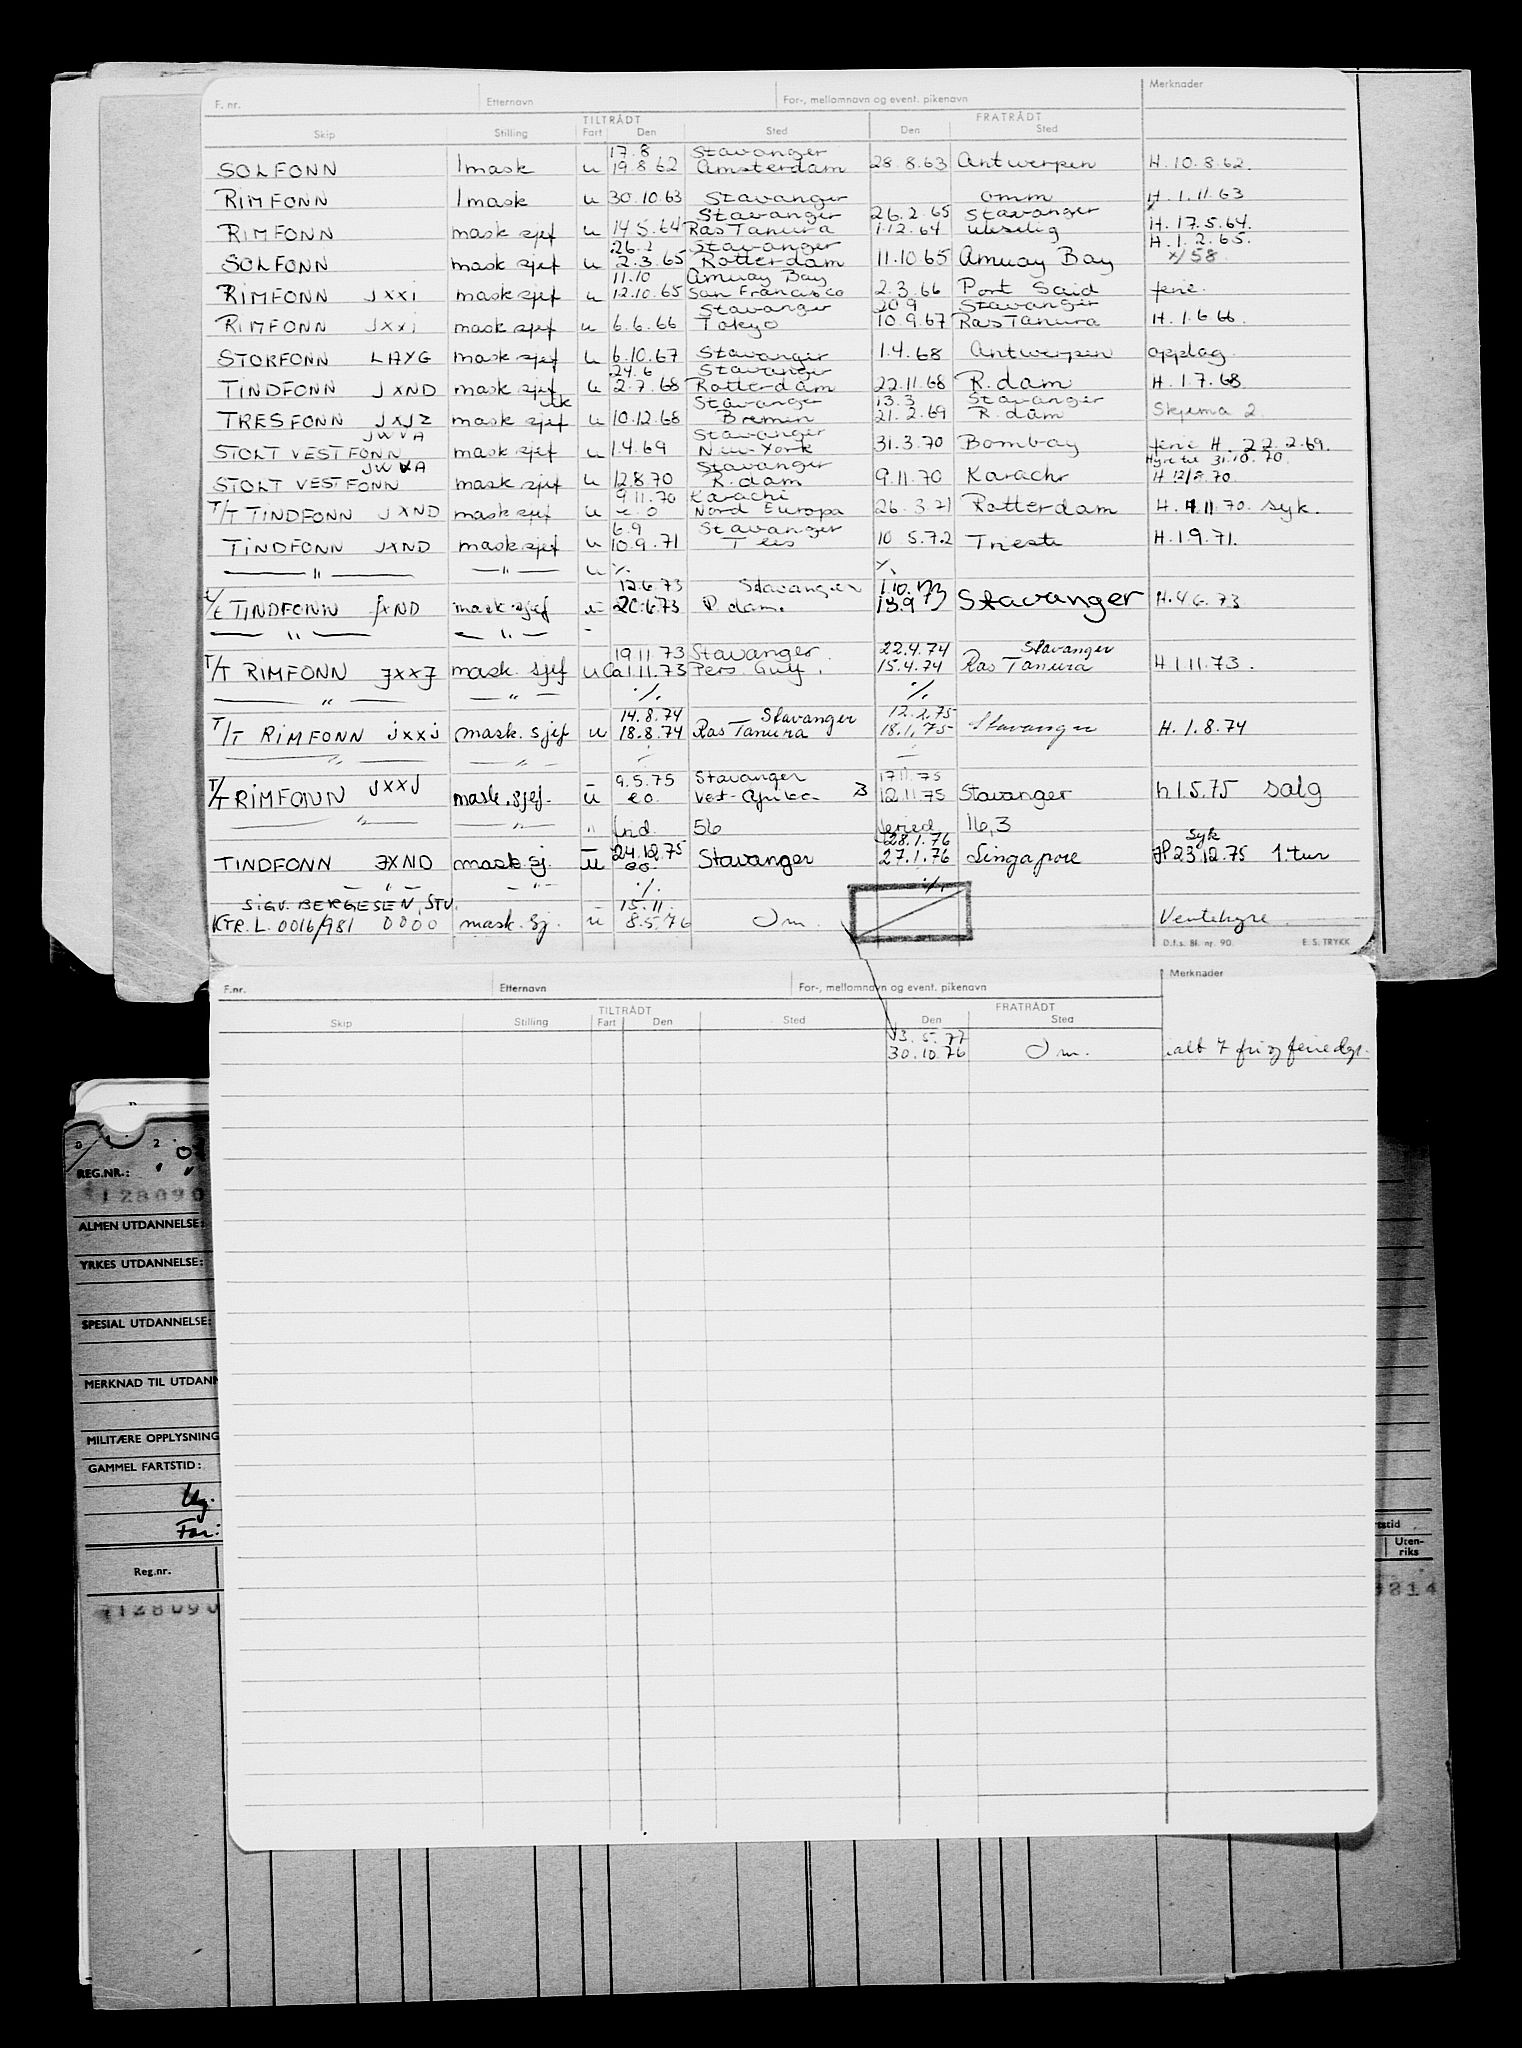 F. nr. Etternavn For-, mellomnavn og event. pikenavn Merknader
TILTRÅDT FRATRÅDT
Skip Stilling Fart Den Sted Den Sted
17.8 Stavanger
SOLFONN 1 mask u 19.8.62 Amsterdam 28.8.63 Antwerpen H. 10.8.62.
RIMFONN 1 mask u 30.10.63 Stavanger omm H. 1.11.63
Stavanger 26.2.65 Stavanger
RIMFONN mask sjef u 14.5.64 Ras Tanura 1.12.64 H. 17.5.64.
26.2 Stavanger H. 1.2.65.
SOLFONN mask sjef u 2.3.65 Rotterdam 11.10.65 Amuay Bay x/58
11.10 Amuay Bay
RIMFONN JXXI mask sjef u 12.10.65 San Francisco 2.3.66 Port Said ferie.
Stavanger 20.9 Stavanger
RIMFONN JXXI mask sjef u 6.6.66 Tokyo 10.9.67 Ras Tanura H. 1.6.66.
STORFONN LAYG mask sjef u 6.10.67 Stavanger 1.4.68 Antwerpen opplag
24.6 Stavanger
TINDFONN JXND mask sjef u 2.7.68 Rotterdam 22.11.68 R.dam H. 1.7.68
Stavanger 13.3 Stavanger
TRESFONN JXJZ mask sjef u 10.12.68 Bremen 21.2.69 R.dam Skjema 2.
JWVA Stavanger
STOLT VESTFONN mask sjef u 1.4.69 New-York 31.3.70 Bombay ferie H. 22.2.69.
JWVA Stavanger Hyre til 31.10.70.
STOLT VESTFONN mask sjef u 12.8.70 R.dam 9.11.70 Karachi H 12/8.70
9.11.70 Karachi
T/T TINDFONN JXND mask sjef u e.o Nord Europa 26.3.71 Rotterdam H. 11.70. syk.
6.9 Stavanger
TINDFONN JXND mask sjef u 10.9.71 Tees 10.5.72 Trieste H. 1.9.71.
— " — — " — u ./. ./.
12.6.73 Stavanger 1.10.73
t/t TINDFONN JXND mask sjef u 20.6.73 R.dam. 13.9.73 Stavanger H. 4.6.73
— " — — " — -
19.11.73 Stavanger. 22.4.74 Stavanger
T/T RIMFONN JXXJ mask. sjef u Ca 1.11.73 Pers. Gulf. 15.4.74 Ras Tanura H 1.11.73.
— " — — " — ./. ./.
14.8.74 Stavanger 12.2.75
T/T RIMFONN JXXJ mask. sjef u 18.8.74 Ras Tanura 18.1.75 Stavanger H. 1.8.74
— " — — " —
9.5.75 Stavanger 17.11.75
T/T RIMFONN JXXJ mask. sjef. u e.o. Vest-Afrika 12.11.75 Stavanger h 1.5.75 salg
— " — — " — " 56 16,3
24.12.75 28.1.76 Syk
TINDFONN JXND mask. sj. u e.o. Stavanger 27.1.76 Singapore H 23.12.75 1. tur
— " — — " — ./. ./.
SIGV. BERGESEN, STV. 15.11.
KTR. L. 0016/981 0000 mask. sj. u 8.5.76 Om. Ventehyre.
D.f.s. Bl. nr. 90. E. S. TRYKK
F.nr. Etternavn For-, mellomnavn og event. pikenavn Merknader
TILTRÅDT FRATRÅDT
Skip Stilling Fart Den Sted Den Sted
13.5.77
30.10.76 Om. ialt 7 fri og feriedgr.
REG.NR.:
128090
ALMEN UTDANNELSE:
YRKES UTDANNELSE:
SPESIAL UTDANNELSE:
MERKNAD TIL UTDANN
MILITÆRE OPPLYSNING
GAMMEL FARTSTID:
Utg.
For:
rtstid
Reg.nr. Uten-
riks
128090 3214